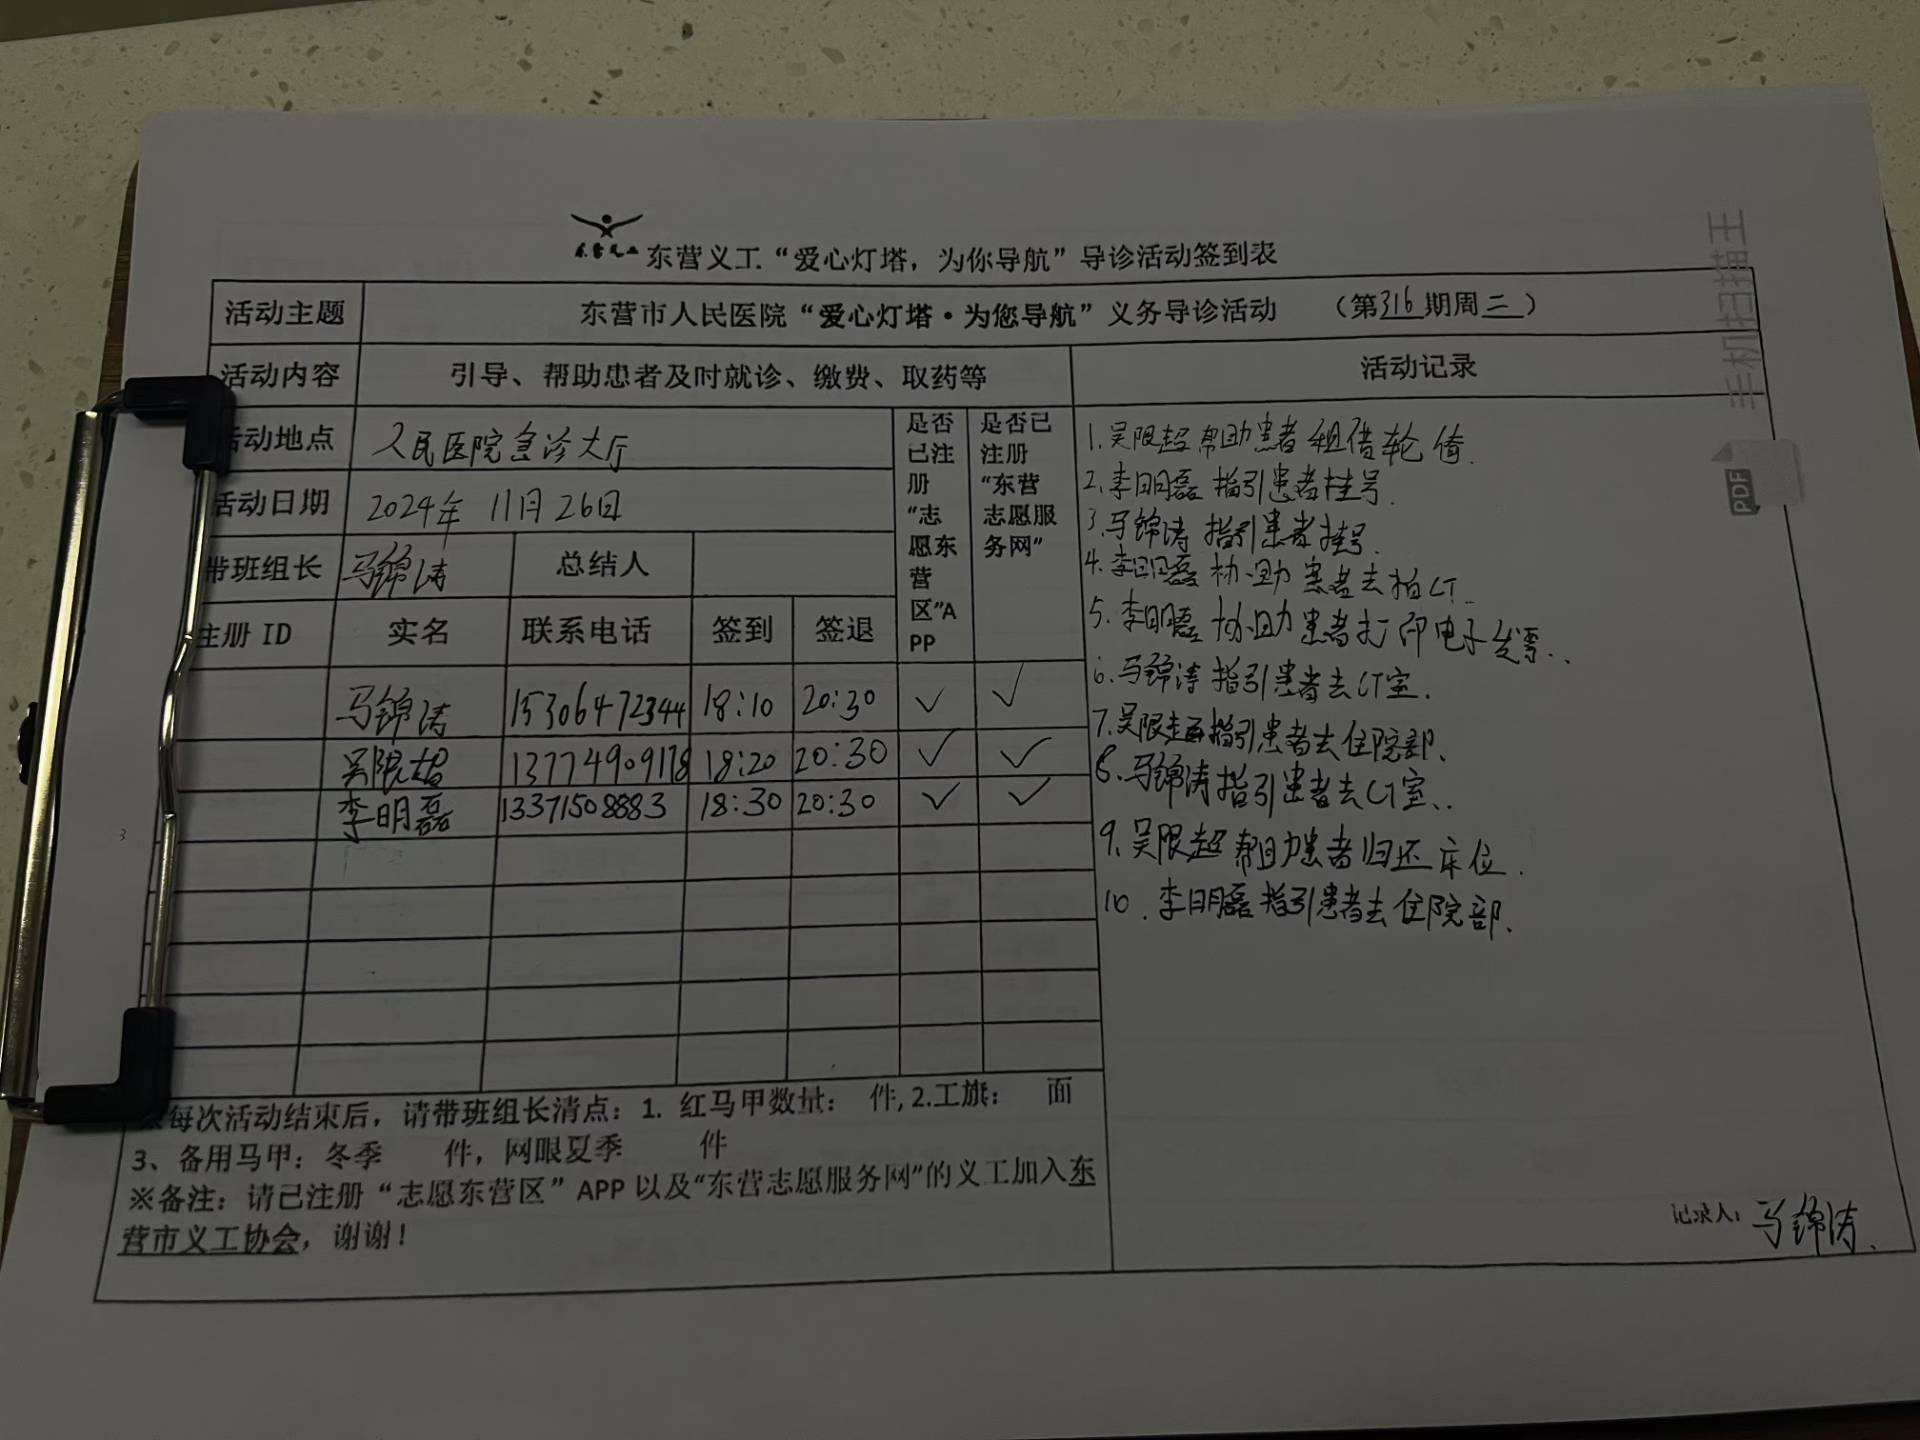 东营义工“爱心灯塔，为你导航”导诊活动签到表
活动主题 东营市人民医院“爱心灯塔·为您导航”义务导诊活动 （第316期周二）
活动内容 引导、帮助患者及时就诊、缴费、取药等 活动记录
活动地点 人民医院急诊大厅
活动日期 2024年 11月26日
带班组长 马锦涛 总结人
是否已注册“志愿东营区”APP
是否已注册“东营志愿服务网”
主册 ID 实名 联系电话 签到 签退
马锦涛 15306472344 18:10 20:30 ✓ ✓
吴限超 13774909178 18:20 20:30 ✓ ✓
李明磊 13371508883 18:30 20:30 ✓ ✓
1.吴限超帮助患者租借轮倚.
2.李明磊指引患者挂号.
3.马锦涛指引患者挂号.
4.李明磊协助患者去拍CT.
5.李明磊协助患者打印电子发票..
6.马锦涛指引患者去CT室.
7.吴限超指引患者去住院部.
8.马锦涛指引患者去CT室..
9.吴限超帮助患者归还床位.
10.李明磊指引患者去住院部.
※每次活动结束后，请带班组长清点：1. 红马甲数量： 件, 2.工旗： 面
3、备用马甲：冬季 件，网眼夏季 件
※备注：请已注册“志愿东营区”APP 以及“东营志愿服务网”的义工加入东
营市义工协会，谢谢！
记录人：马锦涛.
手机扫描王
PDF